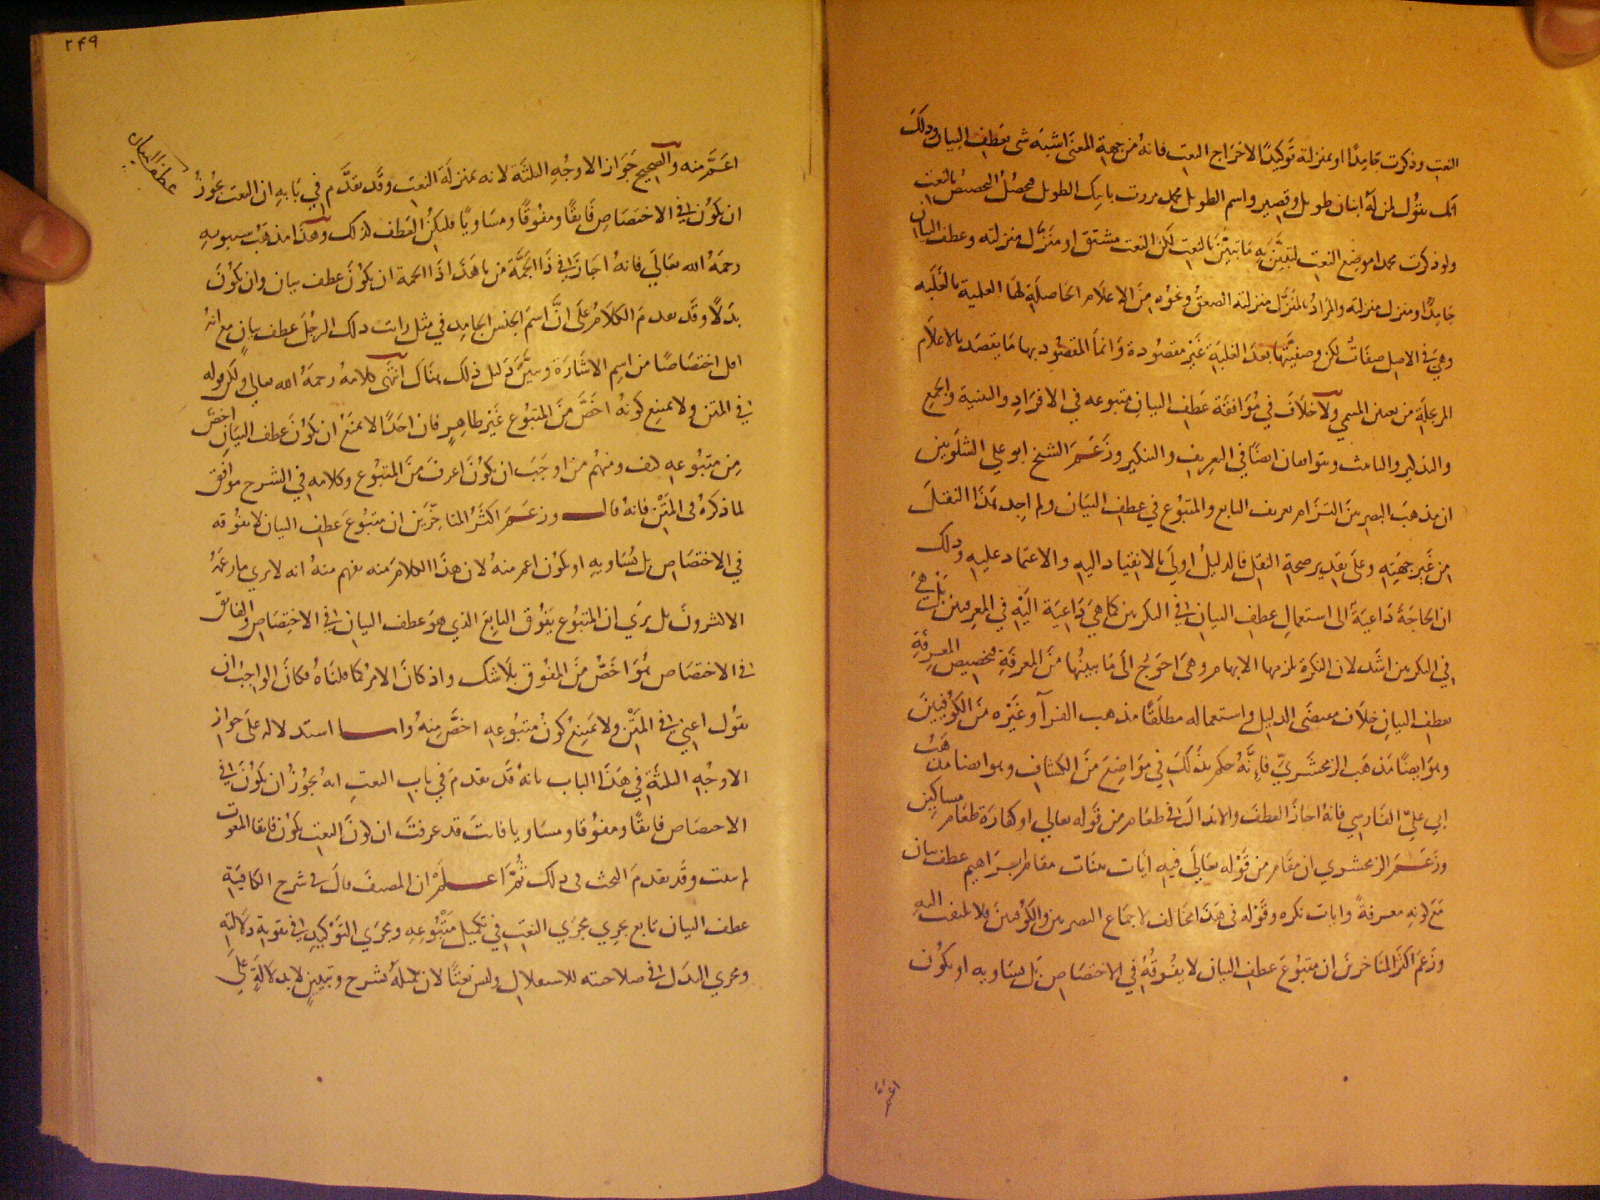 النعت وذكرت جامدا او بمنزلة توكيدا لاخراج النعت فانه من جهة المعنى اشبه شى بعطف البيان وذلك
انك تقول لمن له ابنان طويل وقصير واسم الطويل محمد مررت بابنك الطويل فيحصل التخصيص بالنعت
ولو ذكرت محمدا موضع النعت لتبين به ما تبين بالنعت لكن النعت مشتق او منزل منزلته وعطف البيان
جامدا ومنزل منزلته والمراد بالمنزل منزلته الصعق ونحوه من الاعلام الحاصلة لها العلمية بالغلبة
وهى فى الاصل صفات لكن وصفيتها بعد الغلبة غير مقصودة وانما المقصود بها ما يقصد بالاعلام
المرتجلة من تعيين المسمى ولا خلاف في موافقة عطف البيان متبوعه في الافراد والتثنية والجمع
والتذكير والتانيث ويتوافقان ايضا في التعريف والتنكير وزعم الشيخ ابو علي الشلوبين
ان مذهب البصريين التزام تعريف التابع والمتبوع في عطف البيان ولم اجد هذا النقل
من غير جهته وعلى تقدير صحة النقل فالدليل اولى بالانقياد اليه والاعتماد عليه وذلك
ان الحاجة داعية الى استعمال عطف البيان في النكرتين كما هي داعية اليه في المعرفتين بل هي
في النكرتين اشد لان النكرة يلزمها الابهام وهى احوج الى ما يبينها من المعرفة فتخصيص المعرفة
بعطف البيان خلاف مقتضى الدليل واستعماله مطلقا مذهب الفرآ وغيره من الكوفيين
وهو ايضا مذهب الزمخشري فانه حكم بذلك في مواضع من الكشاف وهو ايضا مذهب
ابي علي الفارسي فانه اجاز العطف والابدال في طعام من قوله تعالى او كفارة طعام مساكين
وزعم الزمخشري ان مقام من قوله تعالى فيه ايات بينات مقام ابراهيم عطف بيان
مع كونه معرفة وايات نكره وقوله في هذا مخالف لاجماع البصريين والكوفيين فلا يلتفت اليه
وزعم اكثر المتاخرين ان متبوع عطف البيان لا يفوقه في الاختصاص بل يساويه او يكون
اعم منه
٢٤٩
عطف البيان
اعم منه والصحيح جواز الاوجه الثلثة لانه بمنزلة النعت وقد تقدم في بابه ان النعت يجوز
ان يكون في الاختصاص فايقا ومفوقا ومساويا فليكن العطف كذلك وهذا مذهب سيبويه
رحمه الله تعالى فانه اجاز في ذا الجمة من يا هذا ذا الجمة ان يكون عطف بيان وان يكون
بدلا وقد تقدم الكلام على ان اسم الجنس الجامد في مثل رايت ذلك الرجل عطف بيان مع انه
اقل اختصاصا من اسم الاشارة وتبين دليل ذلك هناك انتهى كلامه رحمه الله تعالى ولكن قوله
في المتن ولا يمتنع كونه اخص من المتبوع غير ظاهر فان احدا لا يمنع ان يكون عطف البيان اخص
من متبوعه كيف ومنهم من اوجب ان يكون اعرف من المتبوع وكلامه في الشرح موافق
لما ذكره فى المتن فانه قال وزعم اكثر المتاخرين ان متبوع عطف البيان لا يفوقه
في الاختصاص بل يساويه او يكون اعم منه لان هذا الكلام منه يفهم منه انه لا يرى ما زعمه
الاكثرون بل يرى ان المتبوع يفوق التابع الذي هو عطف البيان في الاختصاص والفايق
في الاختصاص هو اخص من المفوق بلا شك واذ كان الامر كما قلناه فكان الواجب ان
يقول اعني في المتن ولا يمتنع كون متبوعه اخص منه واما استدلاله على جواز
الاوجه الثلثة في هذا الباب بانه قد تقدم في باب النعت انه يجوز ان يكون في
الاختصاص فايقا ومفوقا ومساويا فانت قد عرفت ان كون النعت يكون فايقا المنعوت
لم يثبت وقد تقدم البحث فى ذلك ثم اعلم ان المصنف قال فى شرح الكافية
عطف البيان تابع يجري مجرى النعت في تكميل متبوعه ومجرى التوكيد في تقوية دلالته
ومجرى البدل فى صلاحيته للاستقلال وليس نعتا لان تكميله بشرح وتبيين لا بدلالة على